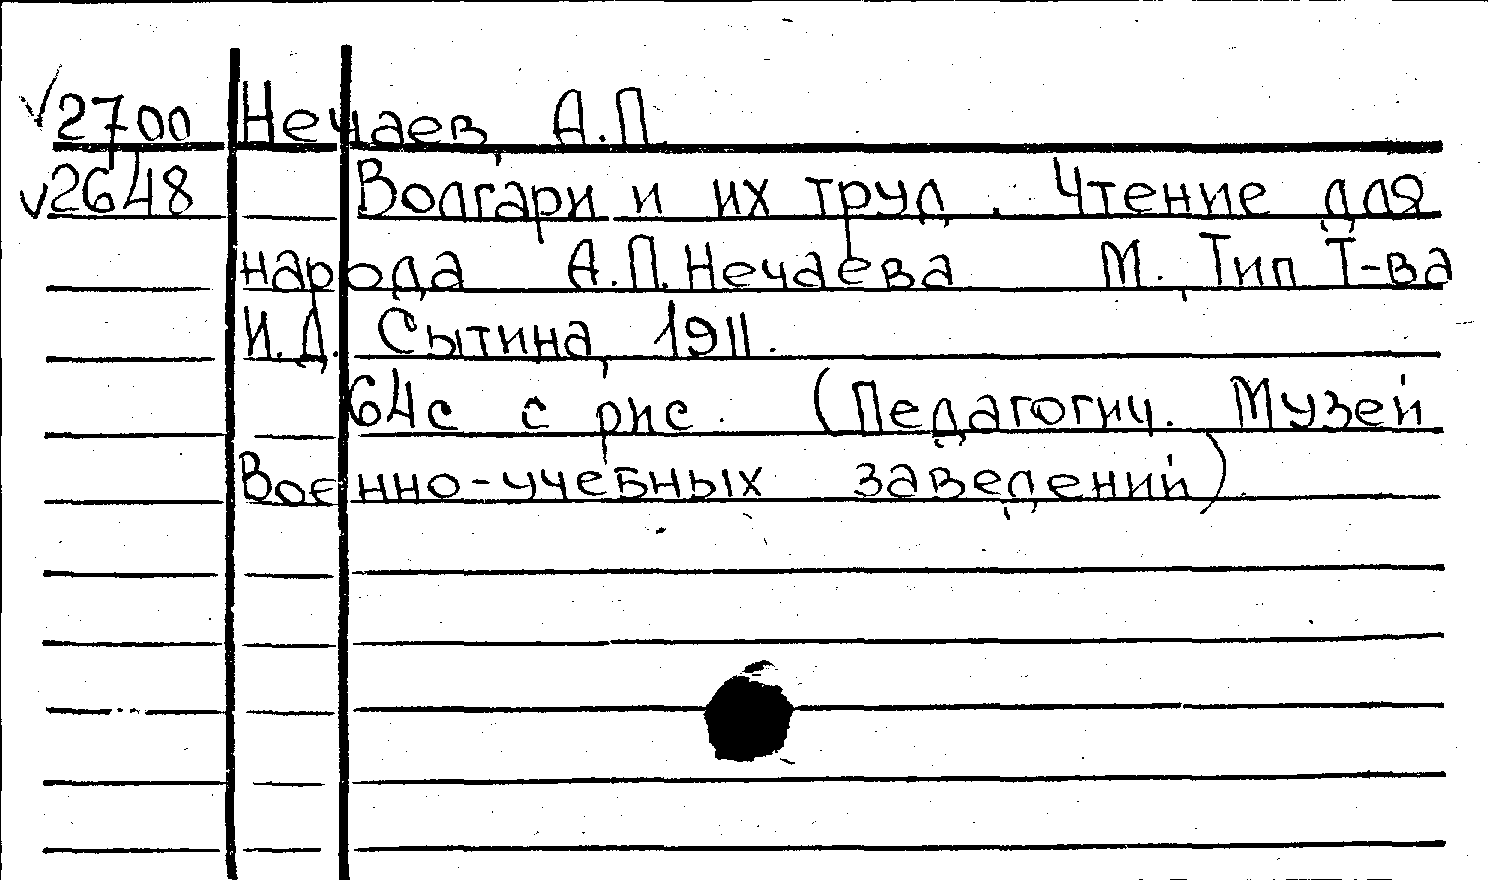 √2700 Нечаев, А.П.
√2648 Волгари и их труд. Чтение для
народа А.П. Нечаева М., Тип Т-ва
И.Д. Сытина, 1911.
64с с рис. (Педагогич. Музей
Военно-учебных заведений).